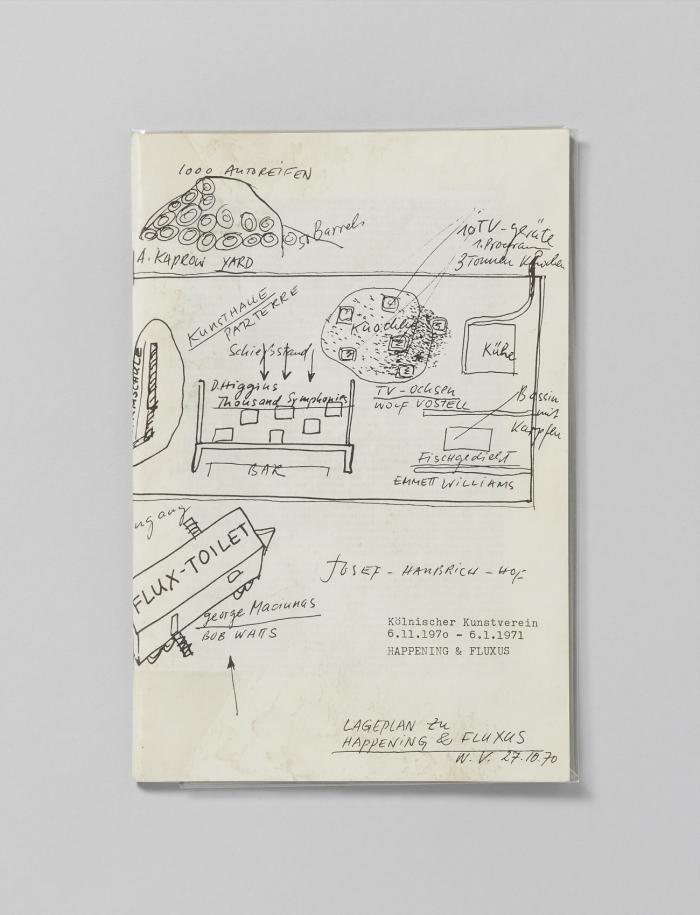 1000 AUTOREIFEN
51 Barrels
A. KAPROW YARD
10 TV-geräte
1. Program
3 Tonnen Knochen
KUNSTHALLE
PARTERRE
Knochen
Schießstand
Kühe
D. Higgins
Thousand Symphonies
TV-OCHSEN
WOLF VOSTELL
Bassin
mit
Karpfen
Fischgedicht
EMMETT WILLIAMS
BAR
FLUX-TOILET
george Maciunas
BOB WATTS
JOSEF-HAUBRICH-HOF
Kölnischer Kunstverein
6.11.1970 - 6.1.1971
HAPPENING & FLUXUS
LAGEPLAN zu
HAPPENING & FLUXUS
W. V. 27.10.70